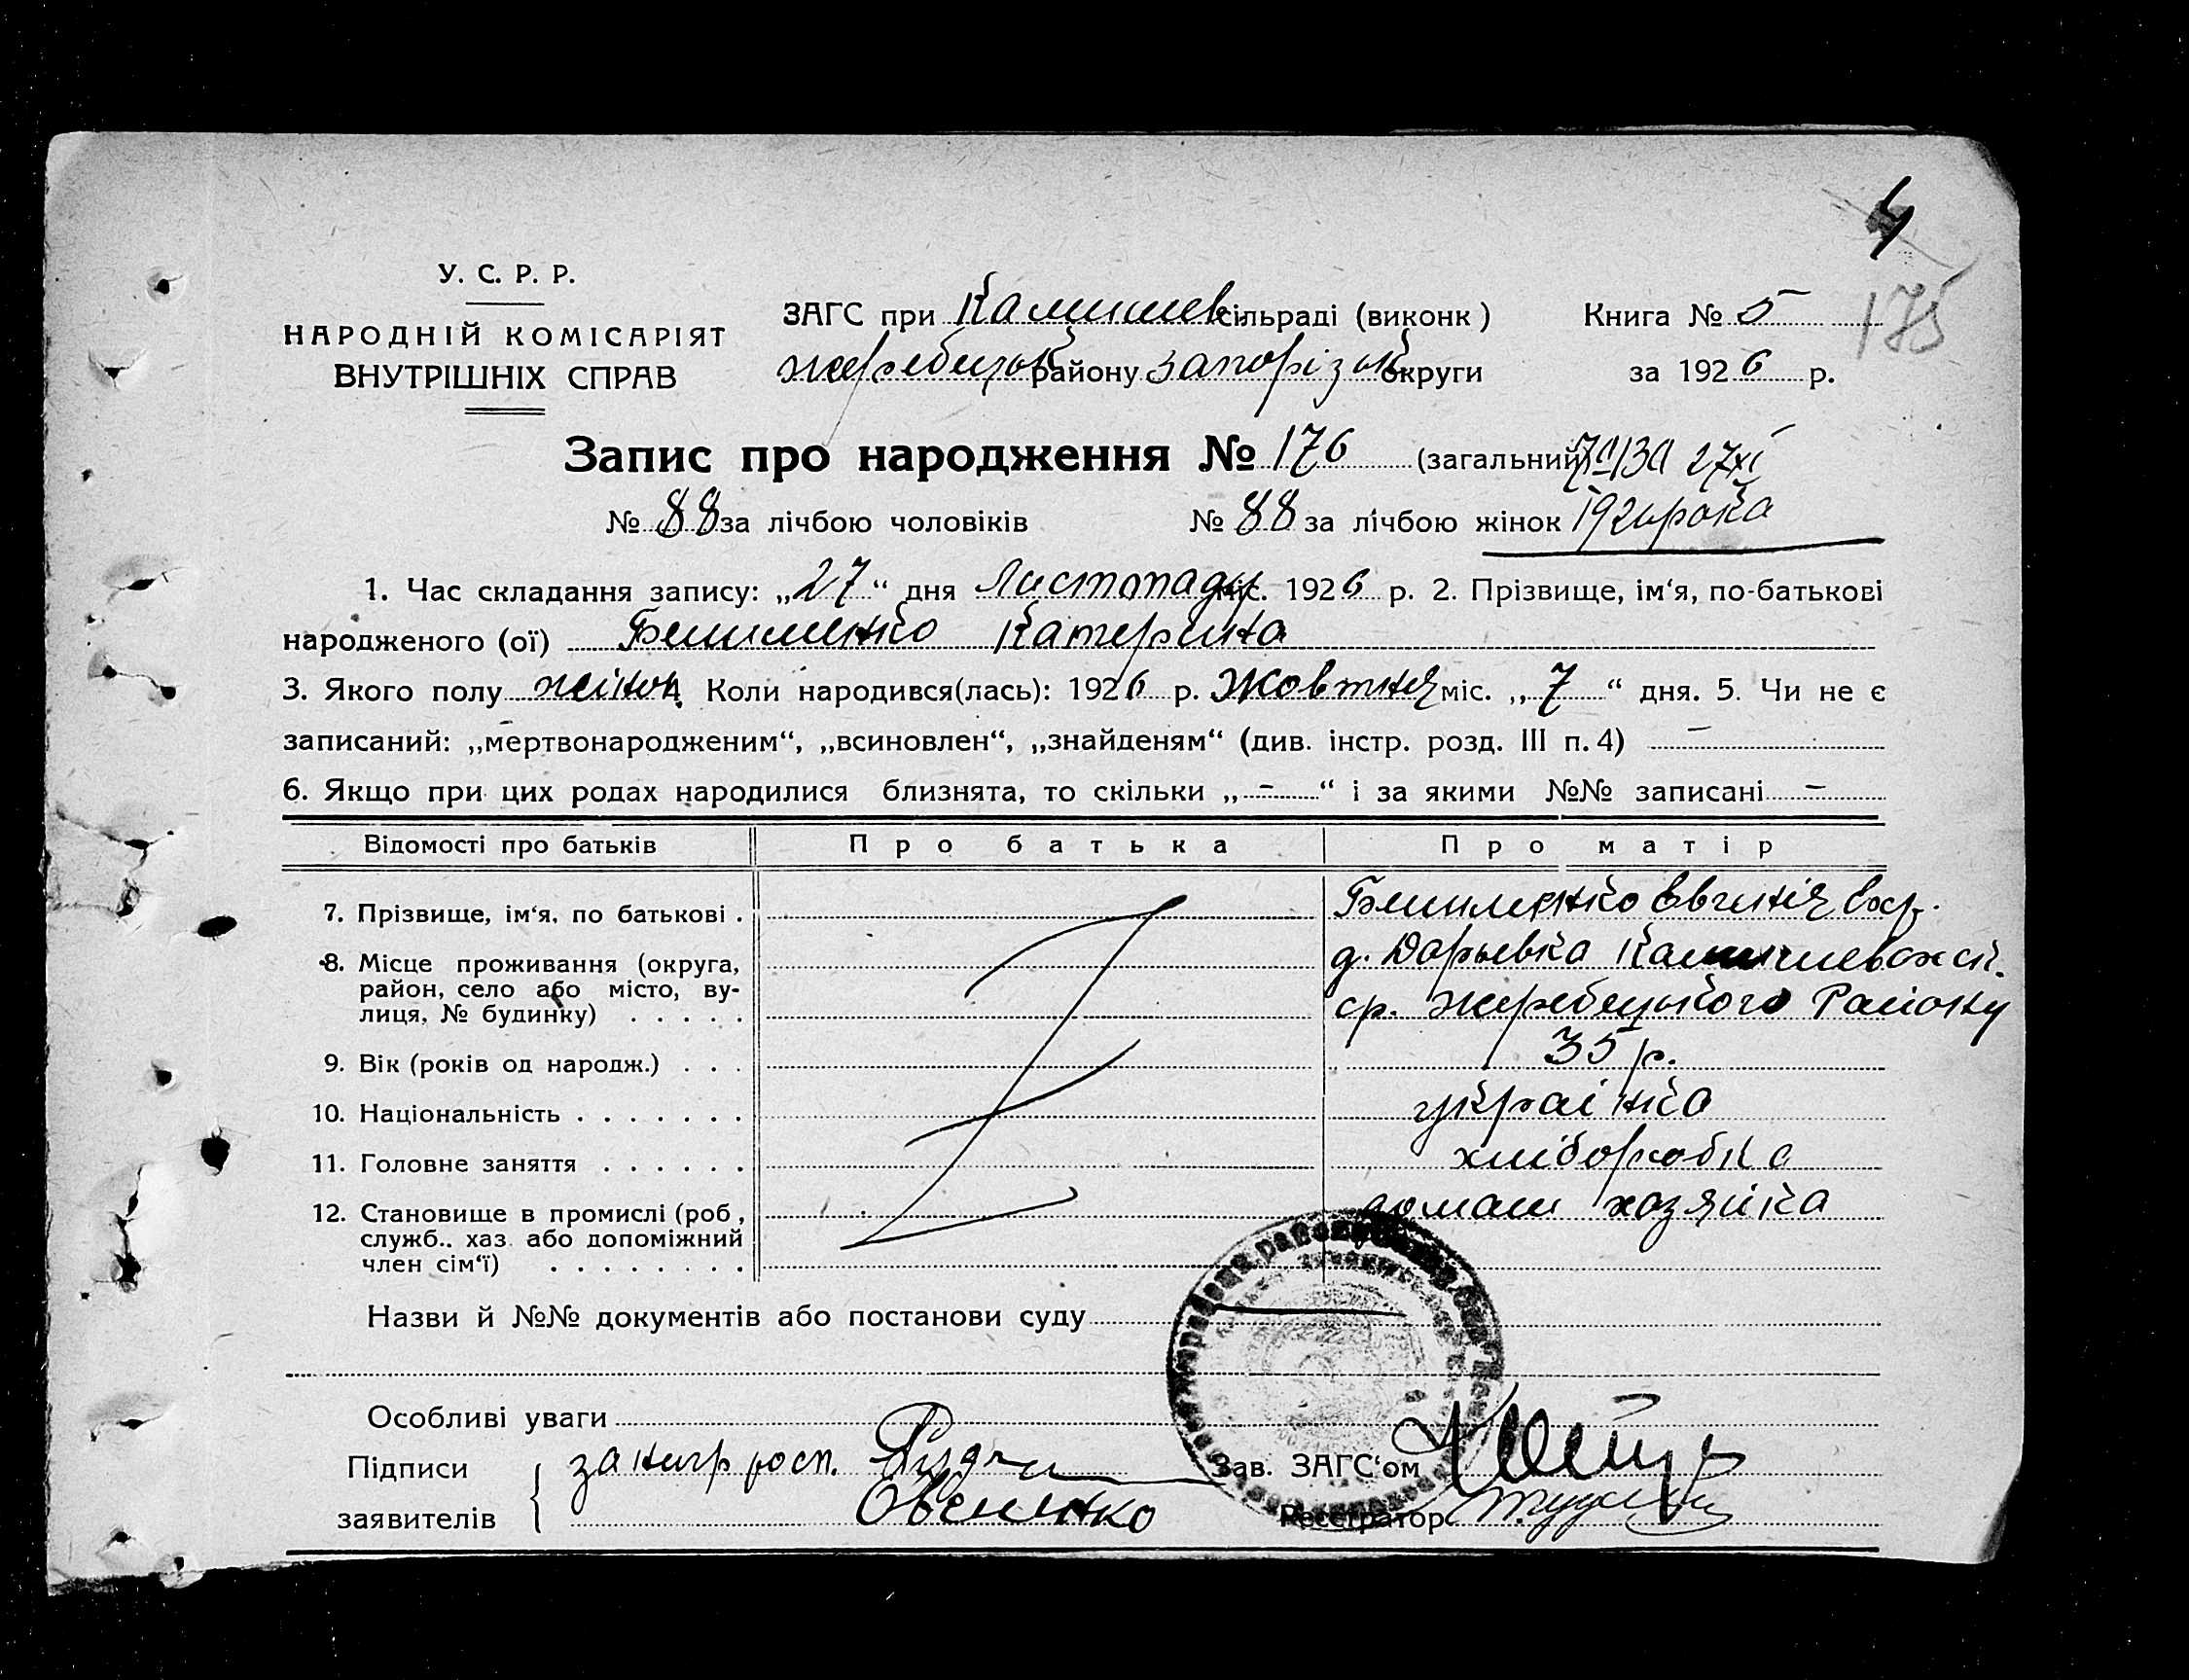 4
175
У. С. Р. Р.
НАРОДНІЙ КОМІСАРІЯТ
ВНУТРІШНІХ СПРАВ
ЗАГС при Камишев. сільраді (виконк)
Жеребецьк району Запорізьк округи
Книга № 5
за 1926 р.
Запис про народження № 176 (загальний)
27/XI
№ 88 за лічбою чоловіків № 88 за лічбою жінок 1926 рока
1. Час складання запису: „27“ дня Листопаду міс. 1926 р. 2. Прізвище, ім‘я, по-батькові
народженого (ої) Катерина
3. Якого полу жіноч 4. Коли народився(лась): 1926 р. Жовтня міс. „7“ дня. 5. Чи не є
записаний: „мертвонародженим“, „всиновлен“, „знайденям“ (див. інстр. розд. III п. 4) –
6. Якщо при цих родах народилися близнята, то скільки „–“ і за якими №№ записані –
Відомості про батьків Про батька Про матір
7. Прізвище, ім‘я, по батькові . Євгинія
8. Місце проживання (округа, д. Дарьевка
район, село або місто, ву- ср. Жеребецького Району
лиця, № будинку) . . . . .
9. Вік (років од народж.) . . . 35 р.
10. Національність . . . . . . . українка
11. Головне заняття . . . . . . хліборобка
12. Становище в промислі (роб, домаш хозяйка
служб.. хаз. або допоміжний
член сім‘ї) . . . . . . . .
Назви й №№ документів або постанови суду
Особливі уваги
Підписи за негр росп.
заявителів Овсиенко
Зав. ЗАГС‘ом
Реєстратор